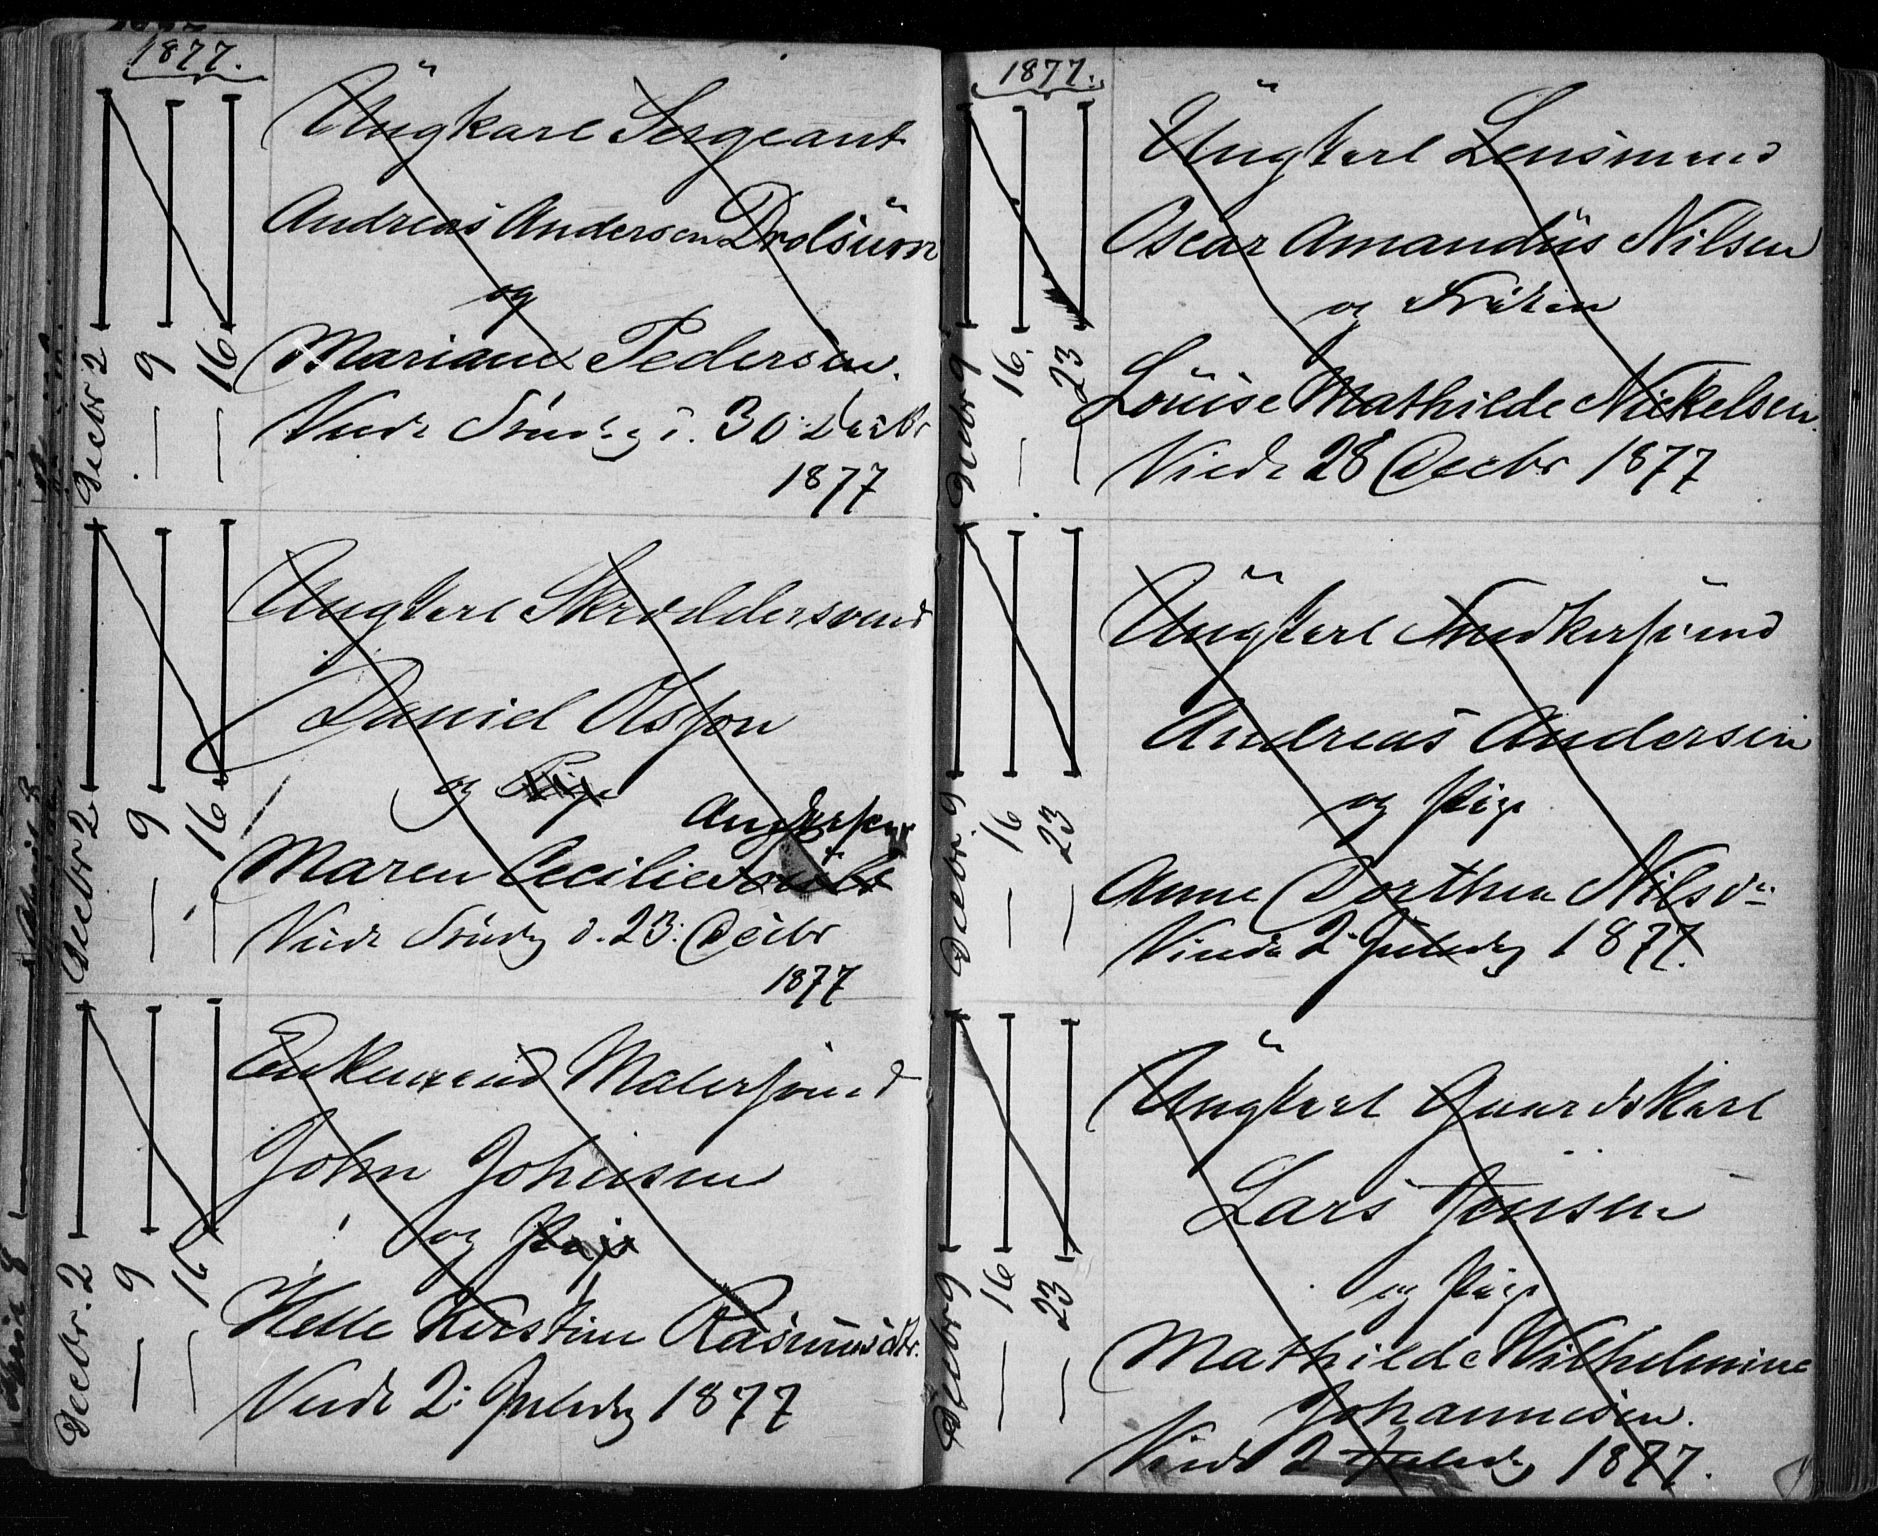 1877.
Decbr 2
9
16
Ungkarl Sergeant
Andreas Andersen Drolsum
og
Mariane Pedersen.
Viede Søndag d. 30 Decbr
1877
Decbr 2
9
16
Ungkarl Skræddersvend
Daniel Olsson
og Pige
Andersen
Maren Cecilie
Viede Søndag d. 23. Decbr
1877
Decbr. 2
9
16
Enkemand Malersvend
John Johnsen
og Pige
Helle Kirstine Rasmusdtr.
Viede 2. Juledag 1877
1877.
Decbr 9
16.
23
Ungkarl Lensmand
Oscar Amandus Nilsen
og Frøken
Louise Mathilde Nickelsen.
Viede 28 Decbr 1877
Decbr 9
16
23
Ungkarl Snedkersvend
Andreas Andersen
og Pige
Anne Dorthea Nilsdr
Viede 2. Juledag 1877.
Decbr 9
16
23
Ungkarl Gaardskarl
Lars Jensen
og Pige
Mathilde Wilhelmine
Johannesen.
Viede 2 Juledag 1877.